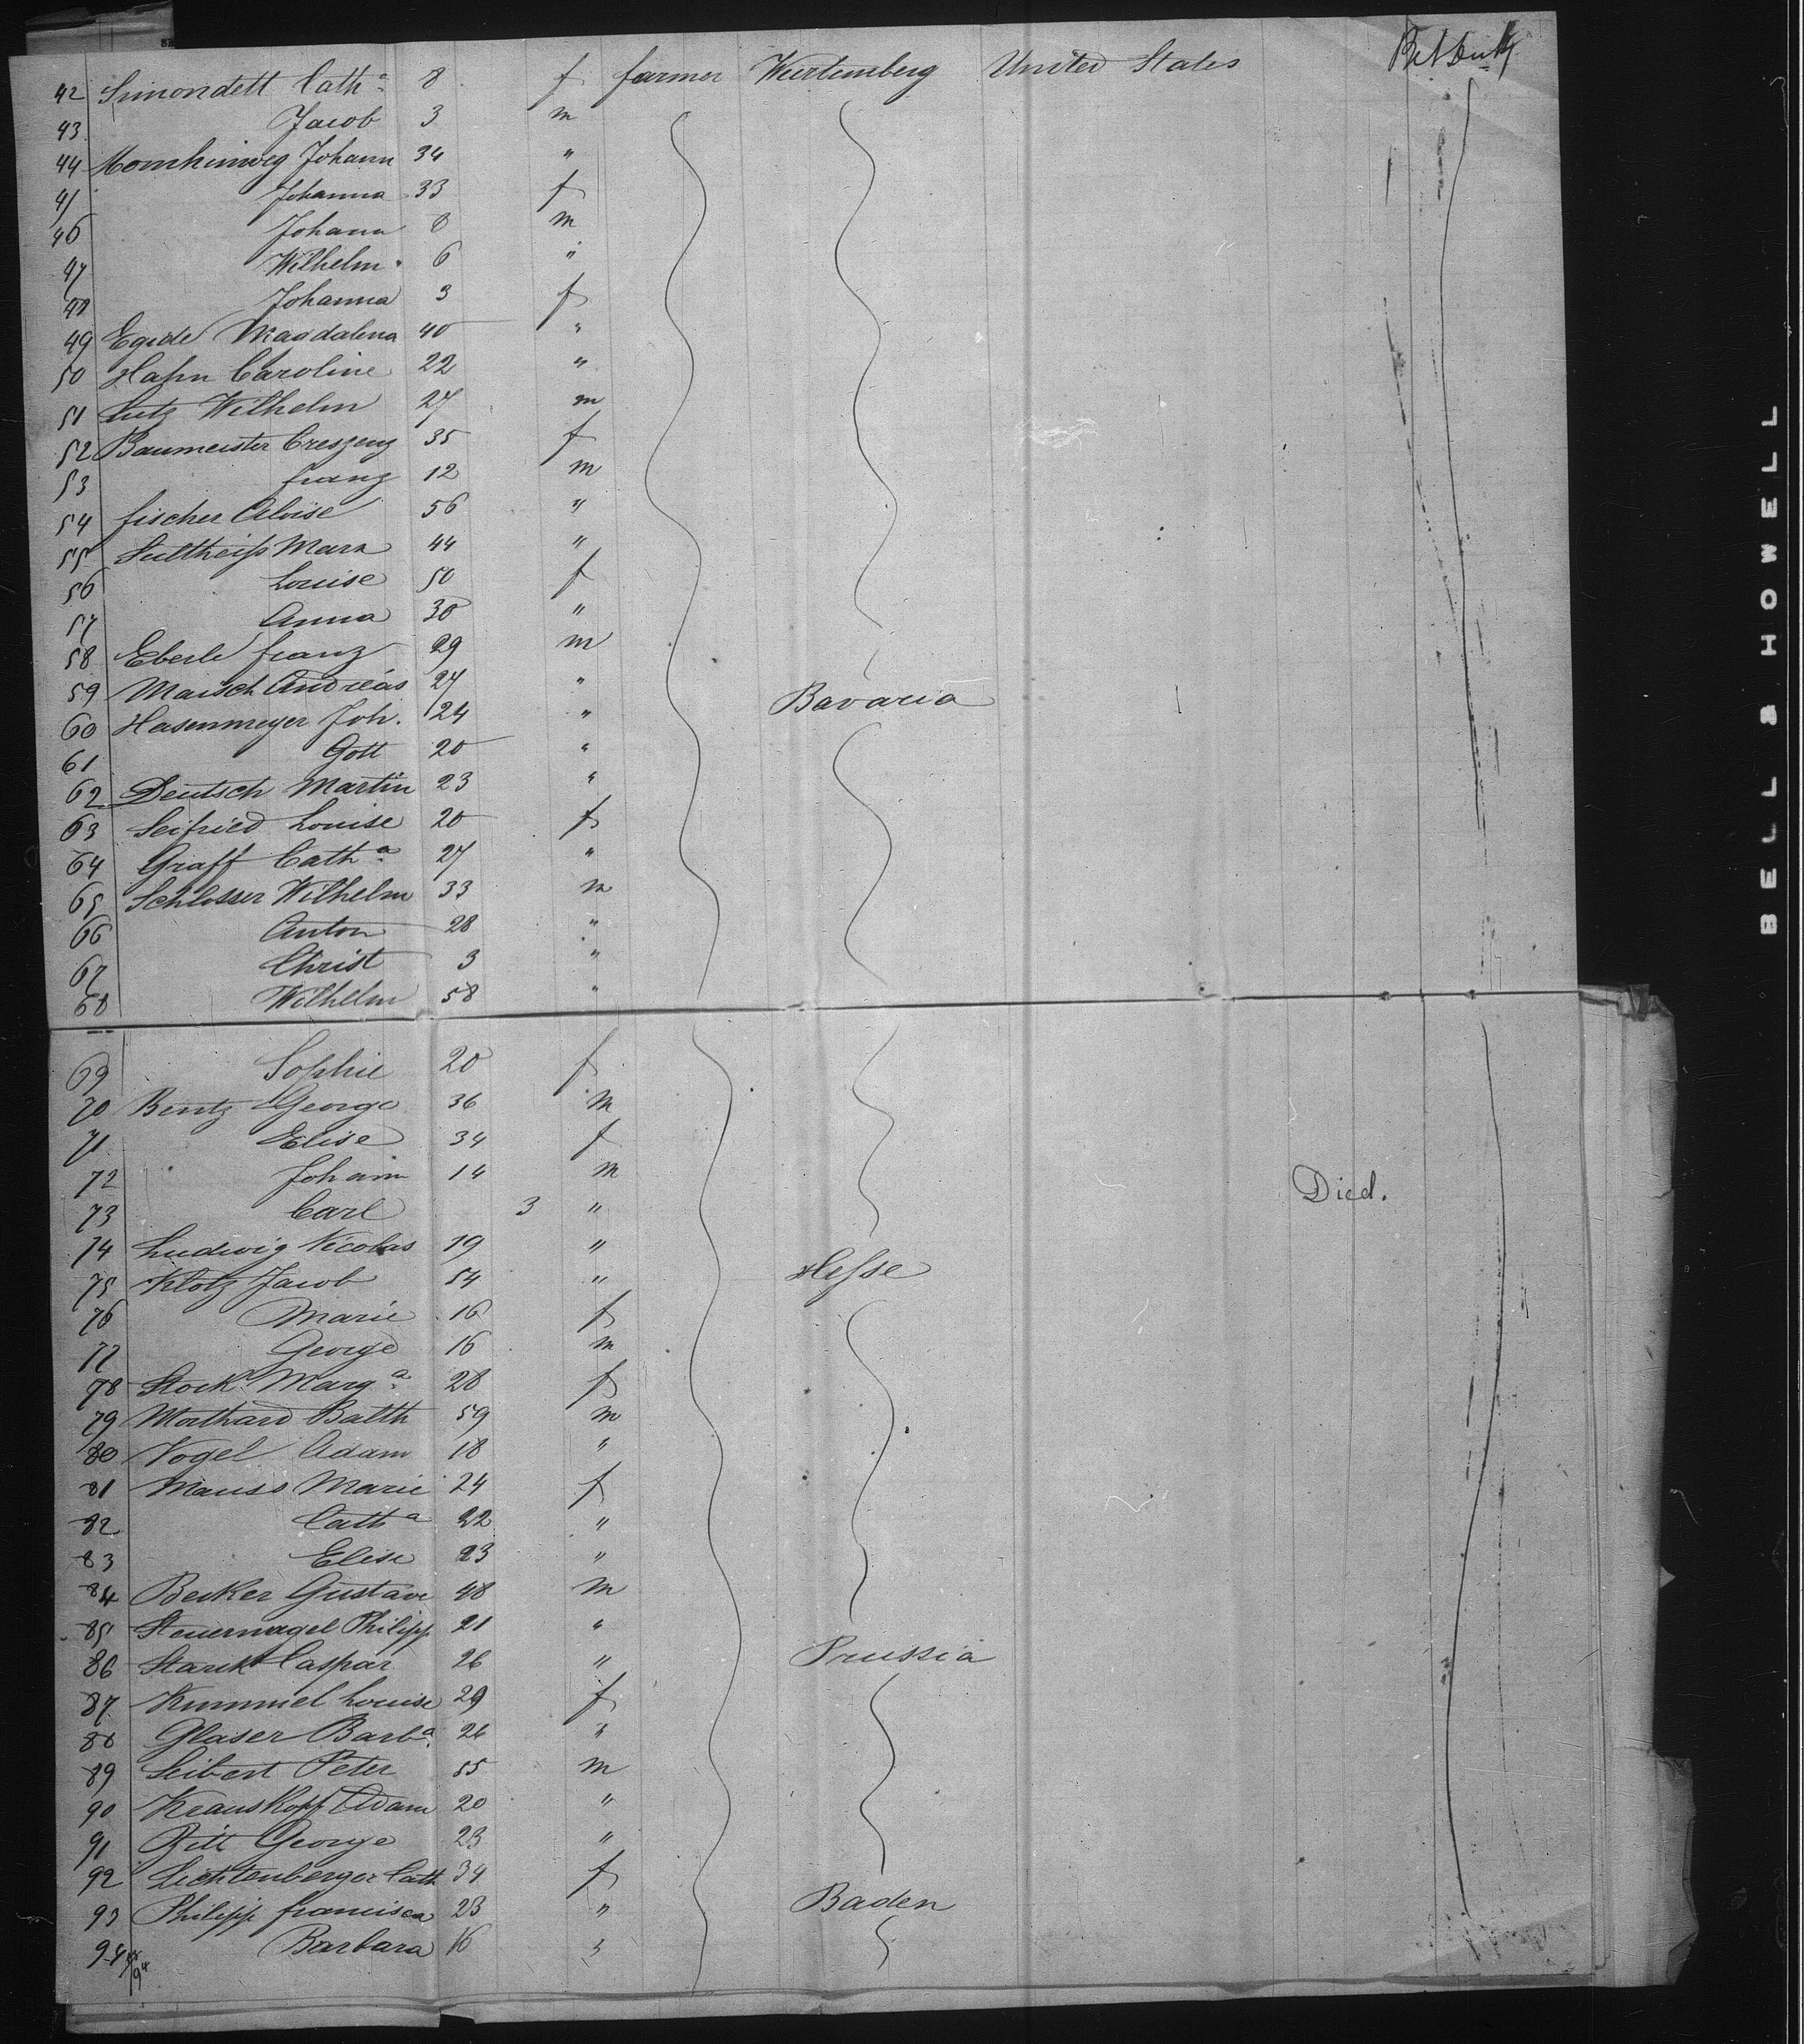 42 Simondett Cath.a 8 f farmer Wurtemberg United States
43 Jacob 3 m
44 Johann 34 "
45 Johanna 33 f
46 Johann 8 m
47 Wilhelm 6 "
48 Johanna 3 f
49 Egide Magdalena 40 "
50 Hahn Caroline 22 "
51 Lutz Wilhelm 27 m
52 Baumeister Creszenz 35 f
53 franz 12 m
54 fischer Aloise 56 "
55 Sultheiss Marx 44 "
56 Louise 50 f
57 Anna 30 "
58 Eberle franz 29 m
59 Maisch Andreas 27 " Bavaria
60 Hasenmeyer Joh. 24 "
61 Gott 20 "
62 Deutsch Martin 23 "
63 Seifried Louise 20 f
64 Graff Cath.a 27 "
65 Schlosser Wilhelm 33 m
66 Anton 28 "
67 Christ 3 "
68 Wilhelm 58 "
69 Sophie 20 f
70 Bentz George 36 m
71 Elise 34 f
72 Johann 14 m
73 Carl 3 " Died.
74 Ludwig Nicolas 19 "
75 Klotz Jacob 54 " Hesse
76 Marie 16 f
77 George 16 m
78 Stock Marg.a 28 f
79 Morthard Balth 59 m
80 Vogel Adam 18 "
81 Mauss Marie 24 f
82 Cath a 22 "
83 Elise 23 "
84 Becker Gustave 48 m
85 Steuernagel Philipp 21 "
86 Stark Caspar 26 " Prussia
87 Kummel Louise 29 f
88 Glaser Barb.a 26 "
89 Seibert Peter 55 m
90 Krauskopf Adam 20 "
91 Ritt George 23 "
92 Lichtenberger Cath 34 f
93 Philipp francisca 23 " Baden
94 Barbara 16 "
BELL & HOWELL